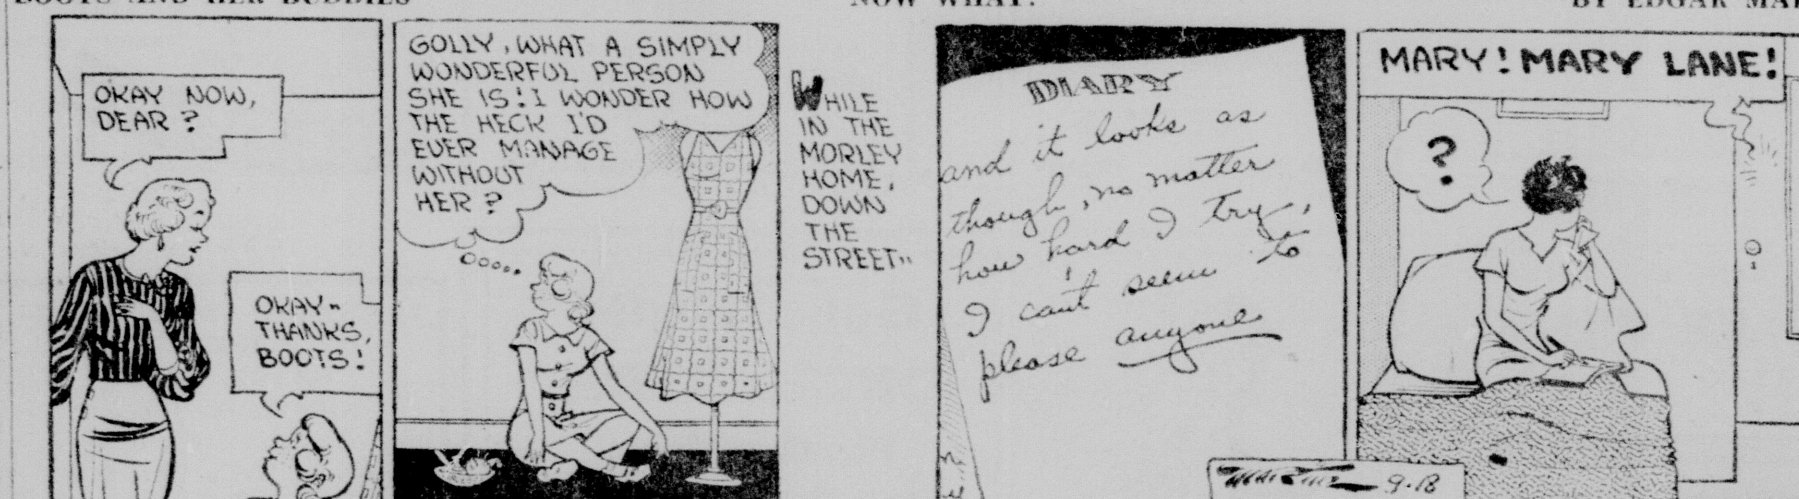 BOOTS AND HER BUDDIES
NOW WHAT?
BY EDGAR
OKAY NOW,
DEAR?
OKAY--
THANKS,
BOOTS!
GOLLY, WHAT A SIMPLY
WONDERFUL PERSON
SHE IS! I WONDER HOW
THE HECK I'D
EVER MANAGE
WITHOUT
HER?
WHILE
IN THE
MORLEY
HOME,
DOWN
THE
STREET--
DIARY
and it looks as
though, no matter
how hard I try,
I can't seem to
please anyone
MARY! MARY LANE!
?
9-18